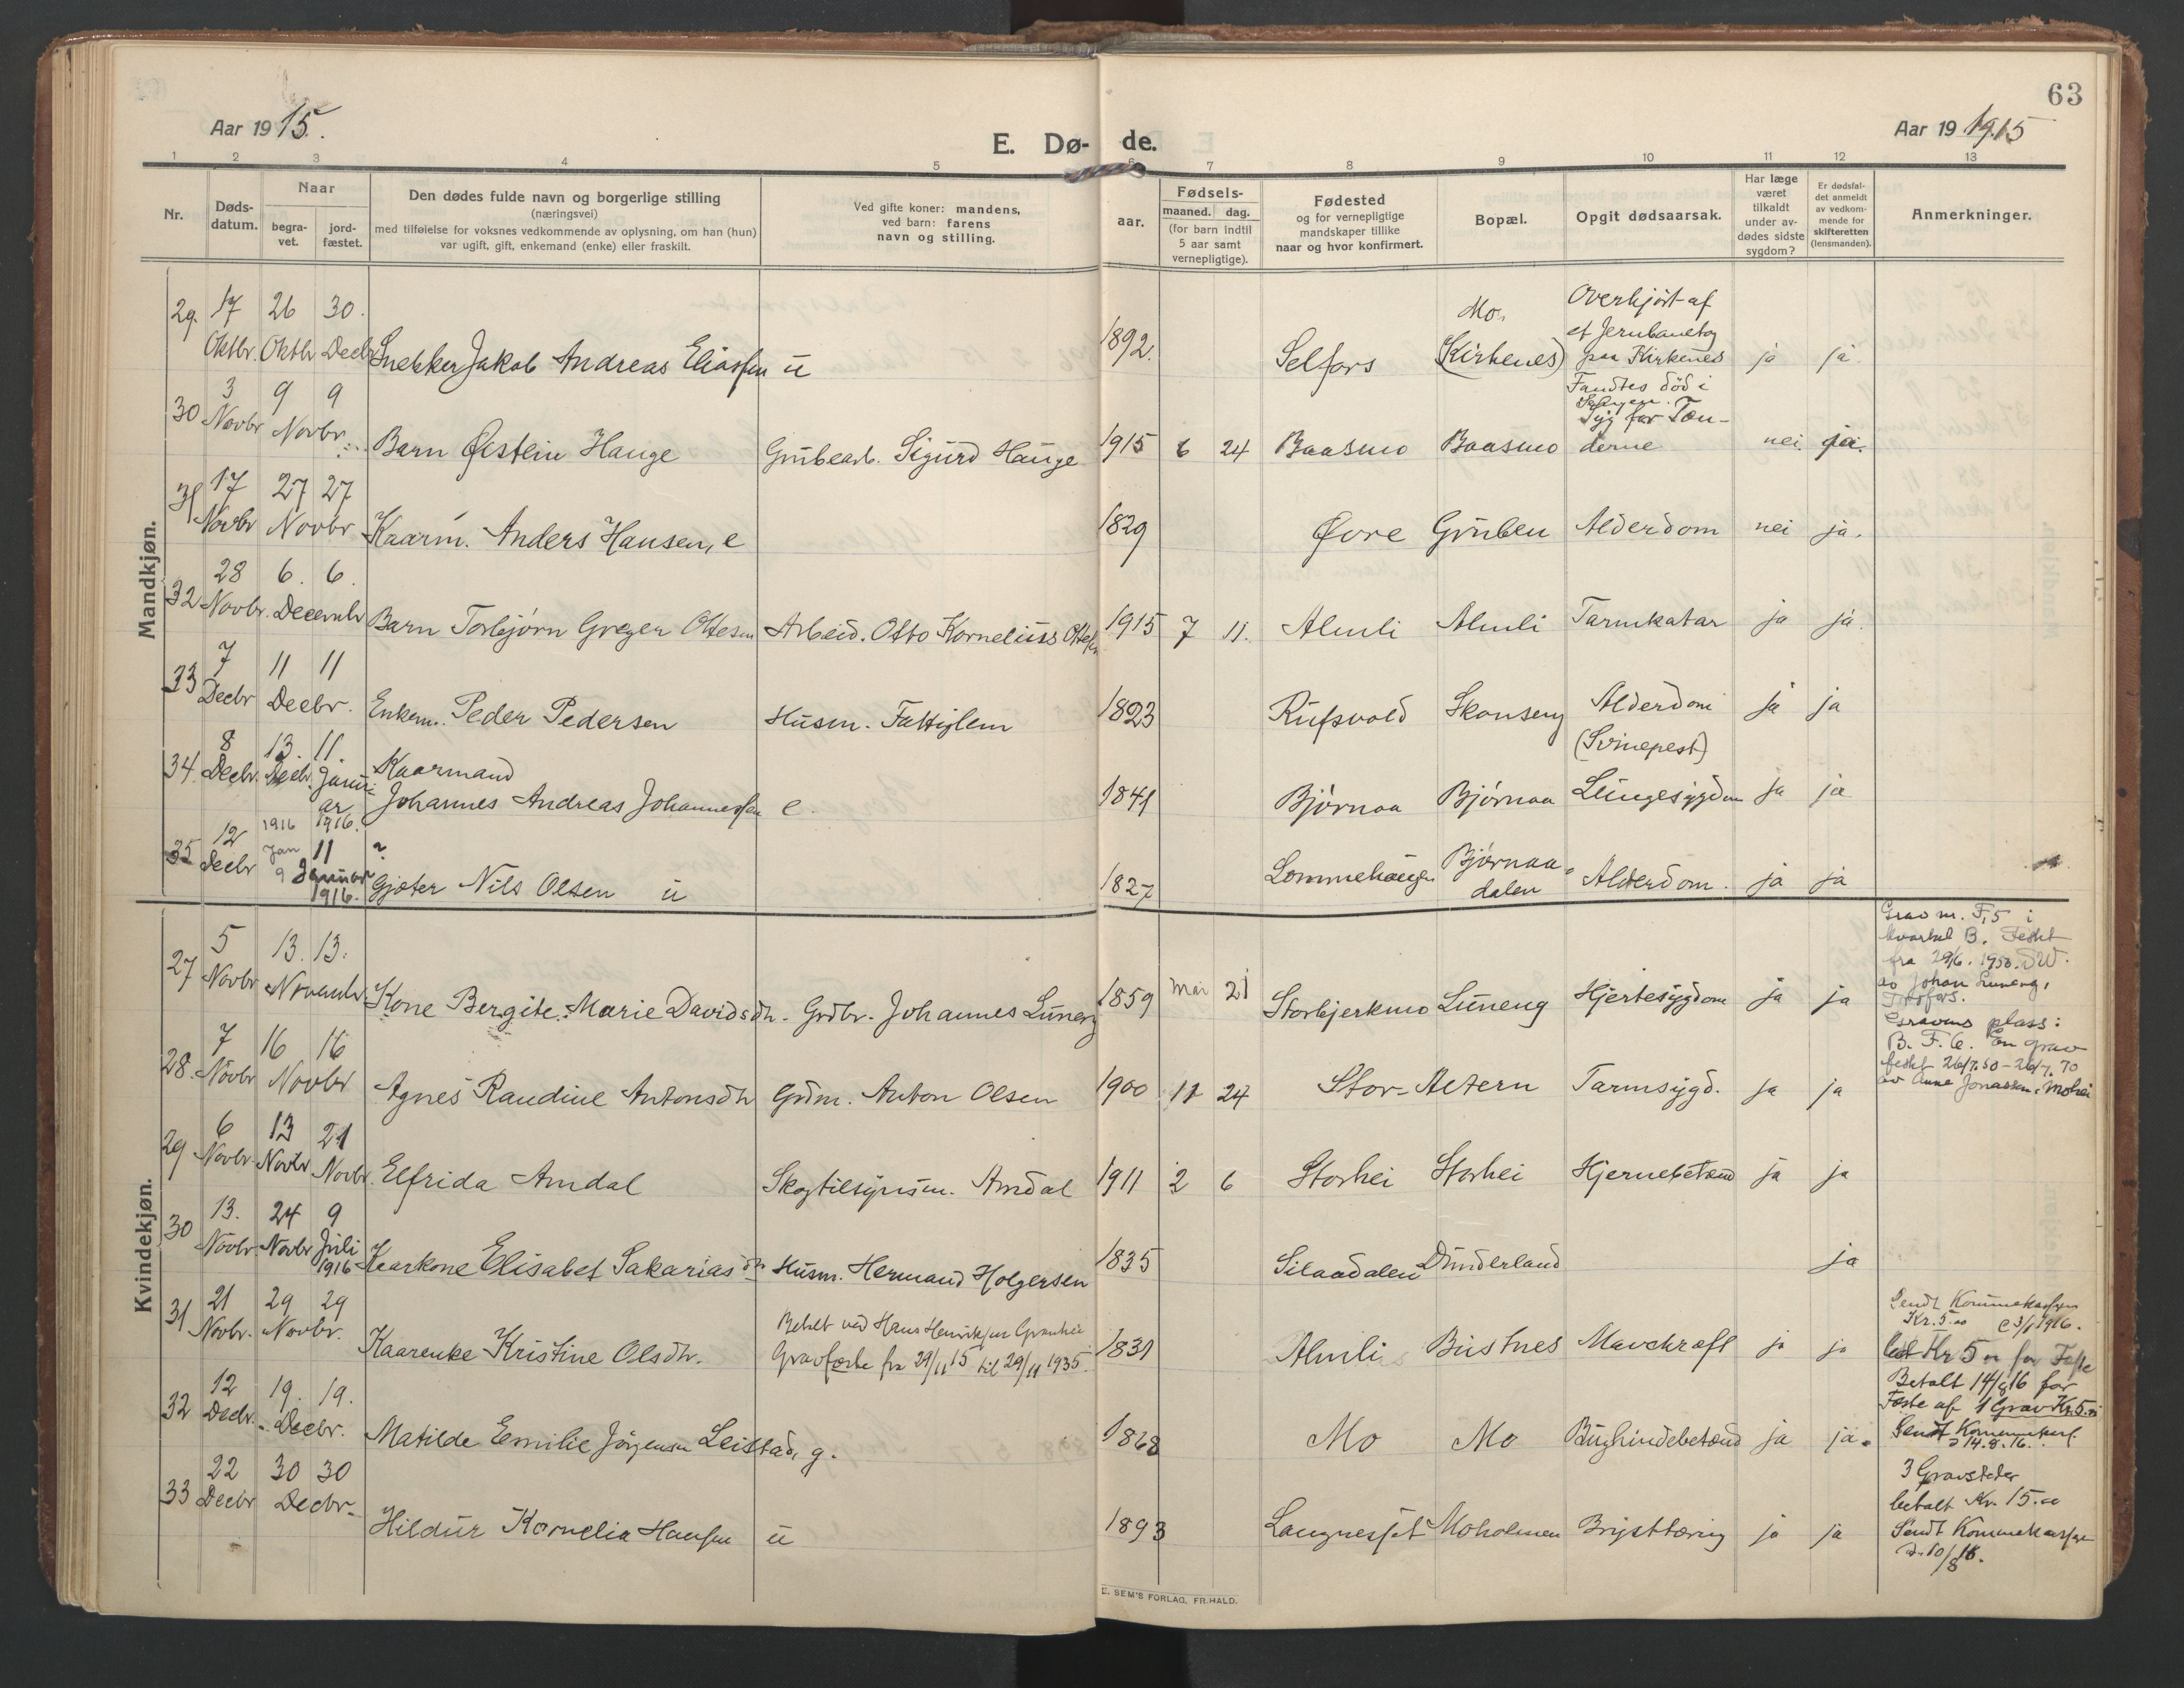 63
Aar 1915.
E. Dø- de.
Aar 19 1915
1 2 3 4 5 6 7 8 9 10 11 12 13
Nr.
Døds-
datum.
Naar
begra-
vet.
jord-
fæstet.
Den dødes fulde navn og borgerlige stilling
(næringsvei)
med tilføielse for voksnes vedkommende av oplysning, om han (hun)
var ugift, gift, enkemand (enke) eller fraskilt.
Ved gifte koner: mandens,
ved barn: farens
navn og stilling.
Fødsels-
aar.
maaned. dag.
(for barn indtil
5 aar samt
vernepligtige).
Fødested
og for vernepligtige
mandskaper tillike
naar og hvor konfirmert.
Bopæl.
Opgit dødsaarsak.
Har læge
været
tilkaldt
under av-
dødes sidste
sygdom?
Er dødsfal-
det anmeldt
av vedkom-
mende for
skifteretten
(lensmanden).
Anmerkninger.
Mandkjøn.
29. 17 Oktbr. 26 Oktbr 30. Decbr Snekker Jakob Andreas Eliassen u 1892. Selfors Mo. (Kirkenes) Overkjørt af
et Jernbanetog
paa Kirkenes ja ja.
30 3 Novbr 9 9 Novbr. Barn Øistein Hauge Grubearb. Sigurd Hauge 1915 6 24 Baasmo Baasmo Fandtes död i
Sengen.
Syg for Tæn-
derne nei. ja.
31 17 Novbr 27 27 Novbr Kaarm. Anders Hansen, e 1829 Øvre Gruben Alderdom nei ja.
32 28 Novbr. 6. 6. Decembr Barn Torbjørn Greger Ottesen Arbeid. Otto Kornelius Ottesen 1915 7 11. Almli Almli Tarmkatar ja ja.
33 7 Decbr 11 11 Decbr. Enkem. Peder Pedersen Husm. Fattiglem 1823 Rufsvold Skonseng Alderdom ja ja
34. 8 Decbr. 13. Decbr. 11. Januar 1916. Kaarmand
Johannes Andreas Johannessen e. 1841 Bjørnaa Bjørnaa (Svinepest)
Lungesygdom ja ja
35 12 Decbr 1916 Jan 9 11 Januar 1916. ?
Gjæter Nils Olsen u 1827 Lommehaugen Bjørnaa-
dalen Alderdom. ja ja
Kvindekjøn.
27 5 Novbr 13. 13. Novembr Kone Bergite Marie Davidsdtr. Grdbr. Johannes Luneng 1859 Mai 21 Storbjerkmo Luneng Hjertesygdom ja ja
Grav nr. F,5 i
kvartal B. Festet
fra 29/6. 1950. DW.
av Johan Luneng,
Gravens plass:
B. F. 6. En grav
festet 26/7.50 - 26/7.70
av Anna Jonassen, Mohei
28. 7 Novbr 16 16 Novbr Agnes Raudine Antonsdtr Grdm. Anton Olsen 1900 11 24 Stor-Aetern Tarmsygd. ja ja
29 6 Novbr. 13 Novbr 21 Novbr. Elfrida Amdal Skogtilsynsm. Amdal 1911 2 6 Storhei Storhei Hjernebetænd ja ja
30 13. Novbr. 24 Novbr 9 Juli 1916 Kaarkone Elisabet Sakariasdtr Husm. Hermand Holgersen 1835 Silaadalen Dunderland ja
31 21 Novbr. 29 29 Novbr. Kaarenke Kristine Olsdtr. Betalt ved Hans Henriksen
Gravfæste fra 29/11 15 til 29/11 1935. 1831 Almli Bustnes Mavekræft ja ja
Sendt Kommunekassen
Kr. 5.00 3/1 1916.
32 12 Decbr. 19. 19. Decbr. Matilde Emilie Jørgensen Leistad, g. 1868 Mo Mo Bughindebetænd ja ja.
Kr 5 for Fæste
Betalt 14/8 16 for
Fæste af 1 Grav Kr. 5.00
Sendt
14.8.16.
33 22 Decbr 30 30 Decbr. Hildur Kornelia Hansen u 1893 Langnesset Moholmen Brysttæring ja ja
3 Gravsteder
betalt Kr. 15.00
Sendt Kommunekassen
d. 10/8 16.
E. SEM'S FORLAG, FR.HALD.